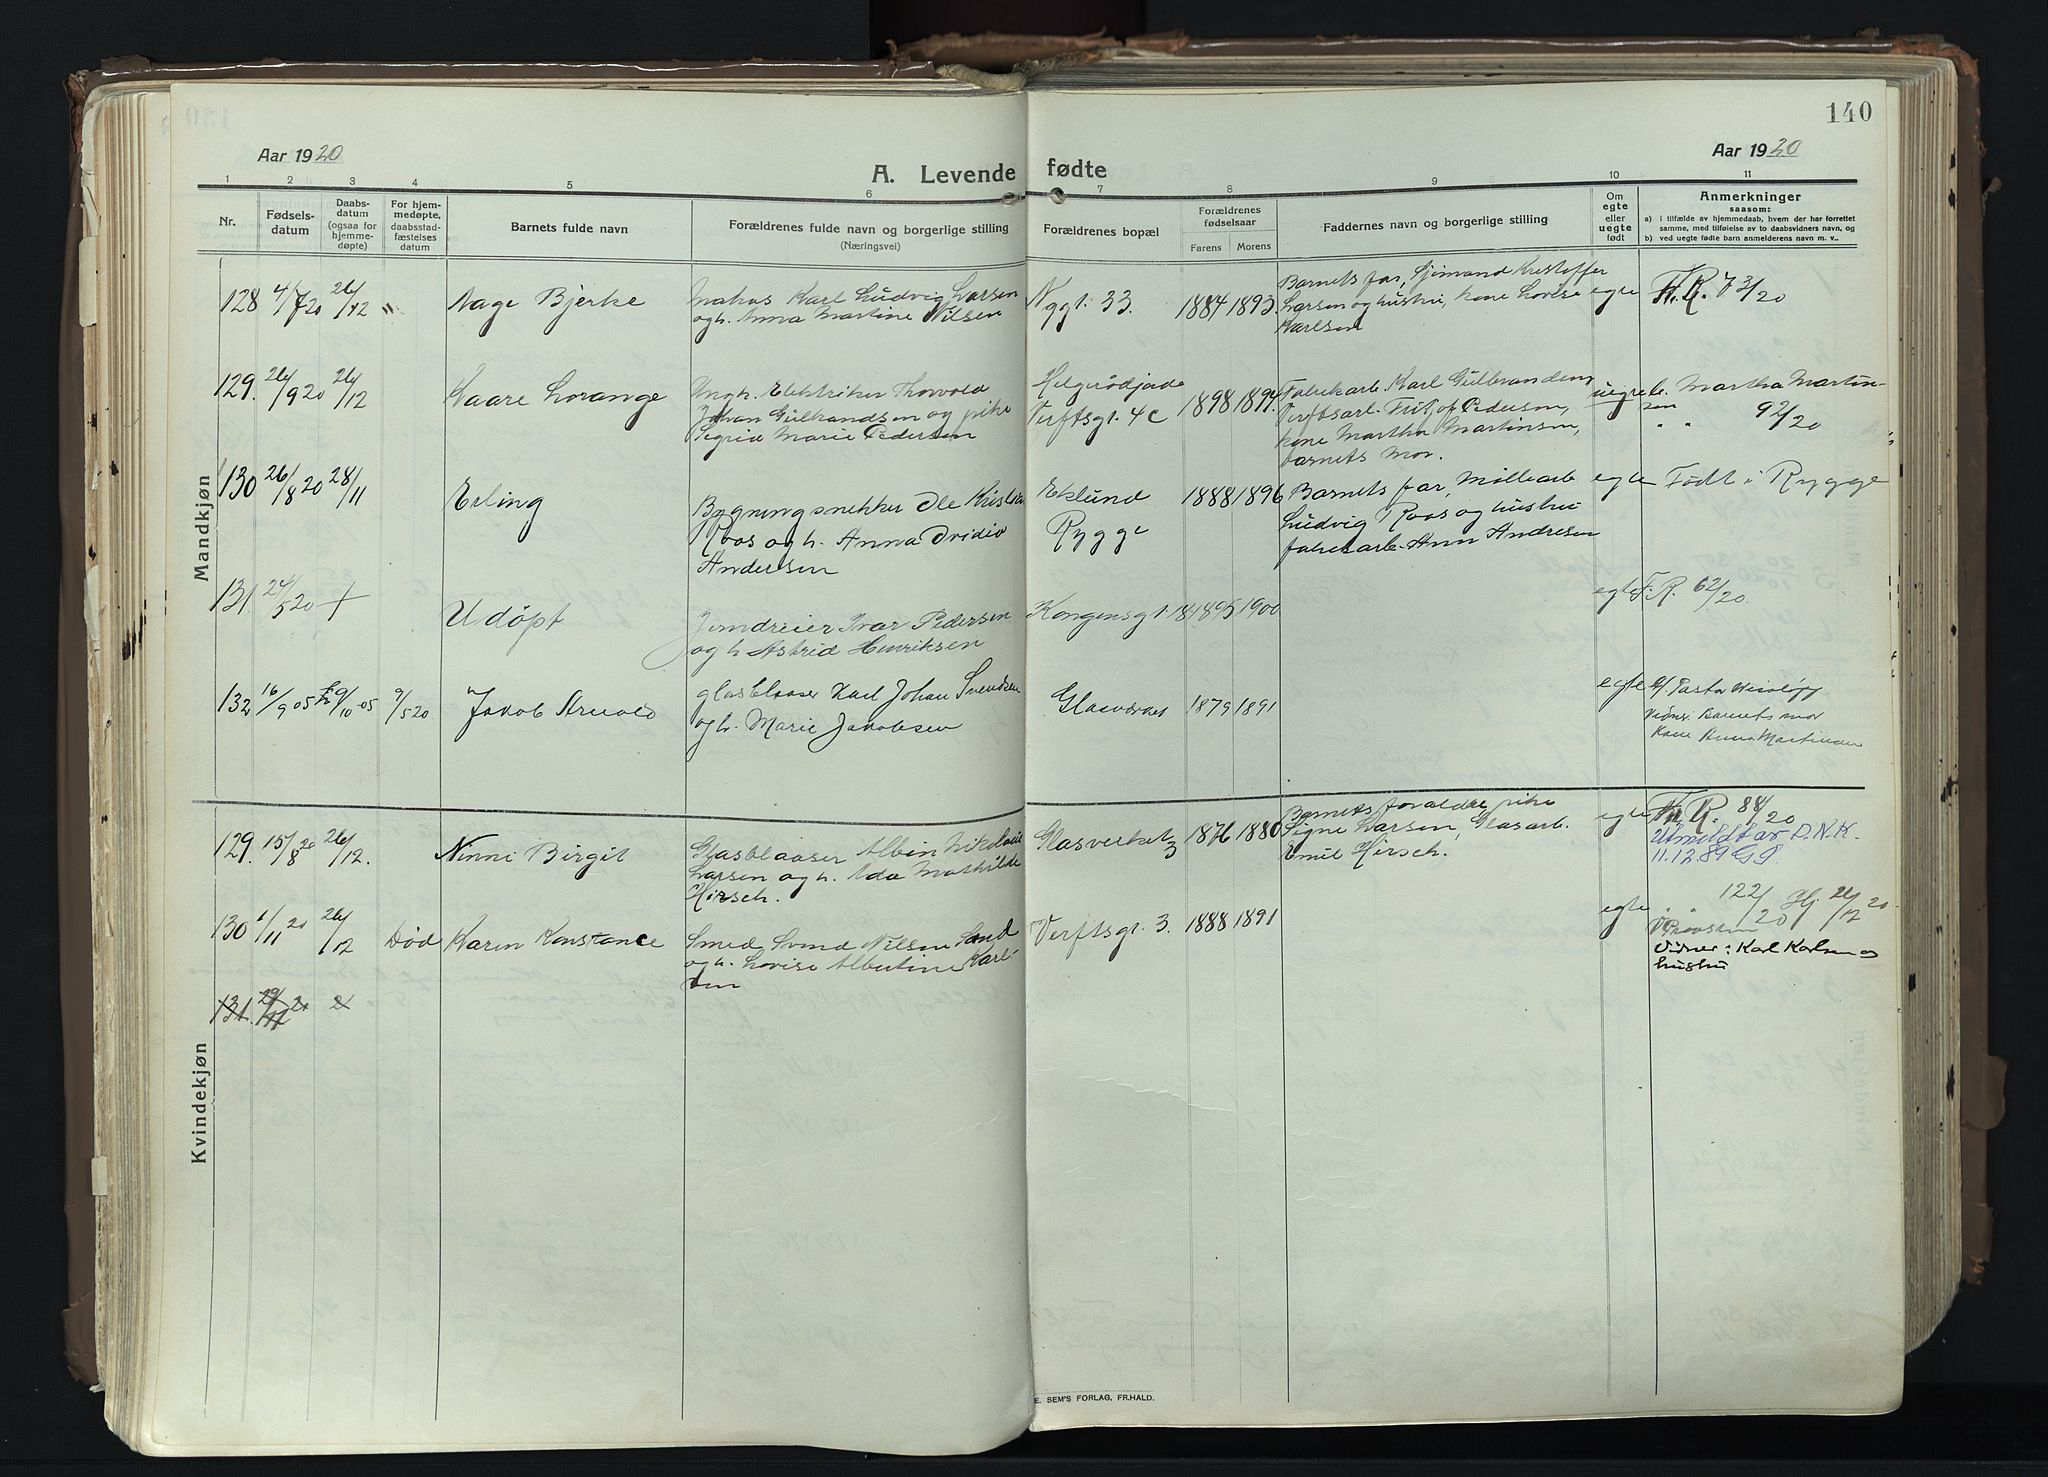 140
Aar 1920
A. Levende fødte
Aar 1920
1 2 3 4 5 6 7 8 9 10 11
Nr.
Fødsels-
datum
Daabs-
datum
(ogsaa for
hjemme-
døpte)
For hjem-
medøpte,
daabsstad-
fæstelses
datum
Barnets fulde navn
Forældrenes fulde navn og borgerlige stilling
(Næringsvei)
Forældrenes bopæl
Forældrenes
fødselsaar
Farens Morens
Faddernes navn og borgerlige stilling
Om
egte
eller
uegte
født
Anmerkninger
saasom:
a) i tilfælde av hjemmedaab, hvem der har forrettet
samme, med tilføielse av to daabsvidners navn, og
b) ved uegte fødte barn anmelderens navn m. v..
Mandkjøn
128 4/7 20 26/12 " Aage Bjerke
Karl Ludvig Larsen
og h. Anna Martine Nilsen
Nygt. 33. 1884 1893
Barnets far, Sjømand Kristoffer
Larsen og hustru, kone Lovise
Karlsen
egte
F.R. 73/20
129. 26/9 20 26/12 Kaare Lorange
Ungk. Elektriker Thorvald
Johan Gulbrandsen og pike
Sigrid Marie Pedersen
Verftsgt. 4c 1898 1894.
Fabrikarb. Karl Gulbrandsen,
Verftsarb. Fritjof Pedersen,
kone Martha Martinsen,
barnets mor.
uegte
Martha Martin-
sen
" " 92/20
130 26/8 20 28/11 Erling
Bygningssnekker Ole Kristian
Roos og h. Anna Ovidia
Andersen
Eklund
Rygge
1888 1896
Barnets far, Møllearb
Ludvig Roos og hustru
fabrikarb. Ann Andresen
egte Født i Rygge
131 24/5 20 + Udøpt
Jerndreier Ivar Pedersen
og h. Astrid Henriksen
Kongensgt. 18 1895 1900
egte F.R. 62/20.
132 16/9 05 9/10 05 9/5 20 Jakob Arnold
Glasblaaser Karl Johan Svendsen
og h. Marie Jakobsen
Glasverket 1879 1891
egte
Vidner: Barnets mor
Kone Anna Martinsen
Kvindekjøn
129. 15/8 20 26/12. Ninni Birgit
Glasblaaser Albin Nikolai
Larsen og h. Ida Mathilde
Hirsch.
Glasverket 3 1876 1880
Barnets foraldre, pike
Signe Larsen, Glasarb.
Emil Hirsch.
egte F.R. 88/20
Utmeldt av D.N.K.
11.12.89 G.S.
130 1/11 20 26/12 Død Karen Konstance
Smed Svend Nilsen Sand
og h. Lovise Albertine Karl-
sen
Verftsgt. 3. 1888 1891
egte " " 122/20 Hj. 26/12 20.
Vidner: Karl Karlsen og
hustru
131. 29/11 20
E. SEM'S FORLAG, FR.HALD.